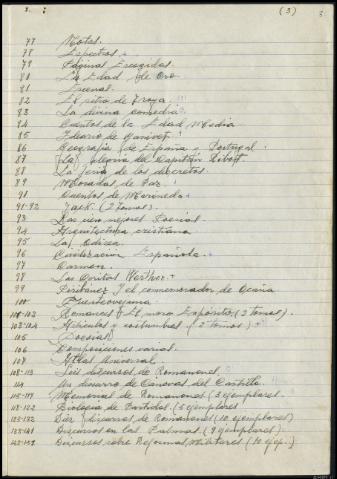 (3)
77 Notas.
78 Espectros
79 Páginas Escogidas
80 La Edad de Oro
81 Escenas.
82 El sitio de Troya
83 La divina comedia
84 Cuentos de la Edad Media
85 Ideario de Ganivet
86 Geografía de España y Portugal
87 La alegría del Capitan Ribot
88 La feria de los discretos
89 Moradas de Paz.
90 Cuentos de Marineda
91-92 Jack. (2 tomos).
93 Las cien mejores Poesías
94 Arquitectura cristiana
95 La Odisea
96 Civilizacion Española
97 Carmen
98 Las Cuitas Werther
99 Peribañez y el comendador de Ocaña
100 Fuenteovejuna
101-102 Romances y El moro Expósito (2 tomos).
103-104 Artículos y costumbres (2 tomos)
105 Poesías
106 Composiciones varias.
107 Atlas Universal
108-113 Seis discursos de Romanones
114 Un discurso de Cánovas del Castillo
115-117 Memorias de Romanones (3 ejemplares
118-122 Biología de Partidos. (5 ejemplares
123-132 Diez discursos de Romanones (10 ejemplares)
133-141 Discursos en las Palmas (9 ejemplares)
Discursos sobre Reformas Militares (10 ejep.)